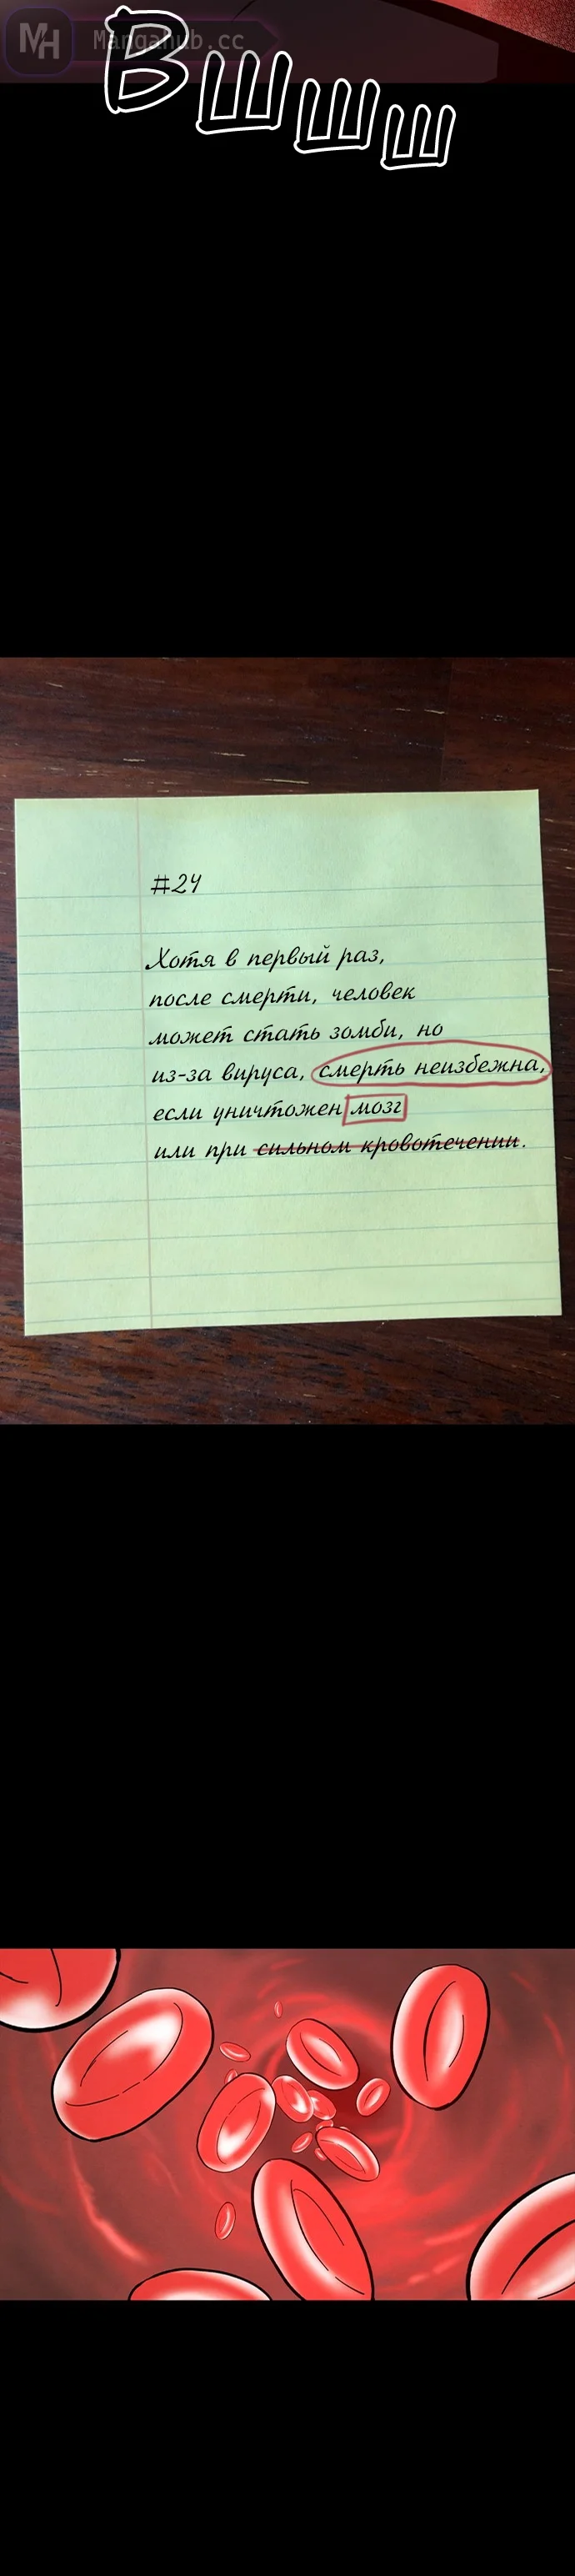 MH Mangahub.cc
Вшшш
#24
Хотя в первый раз,
после смерти, человек
может стать зомби, но
из-за вируса, смерть неизбежна,
если уничтожен мозг
или при сильном кровотечении.